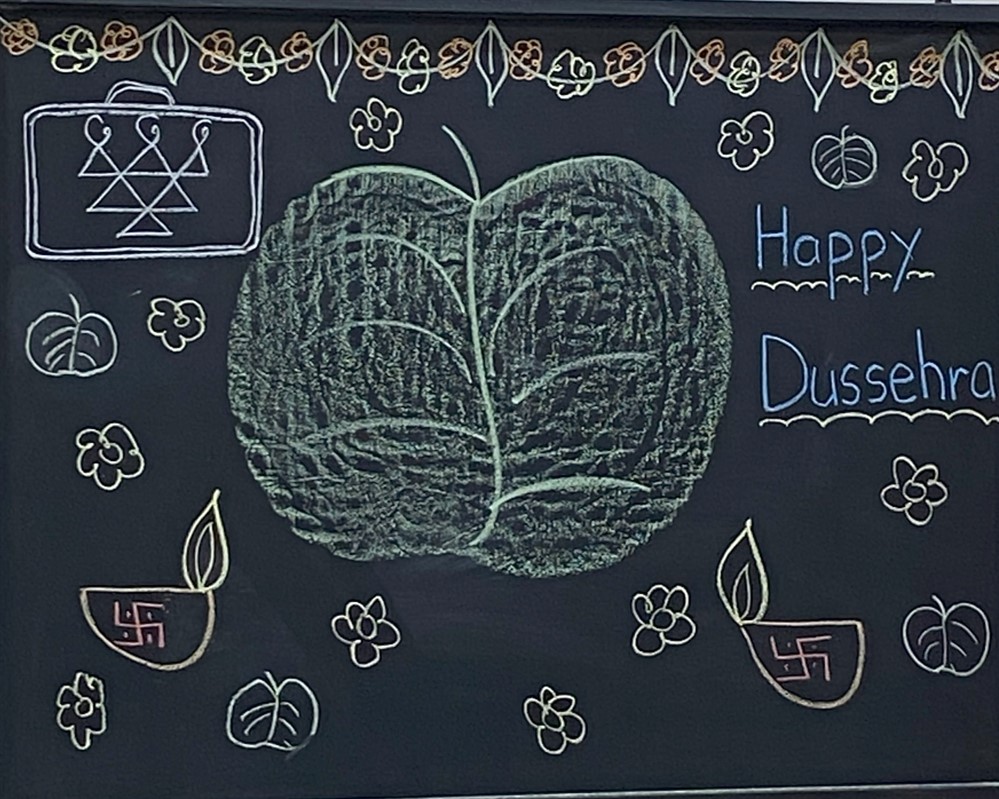 Happy
Dussehra